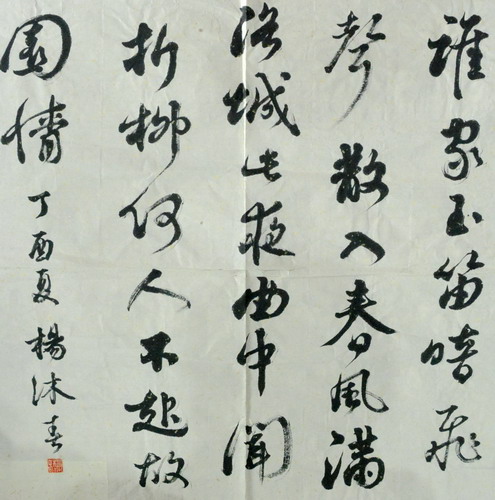 誰家玉笛暗飛
聲散入春風滿
洛城此夜曲中聞
折柳何人不起故
園情
丁酉夏楊沐春